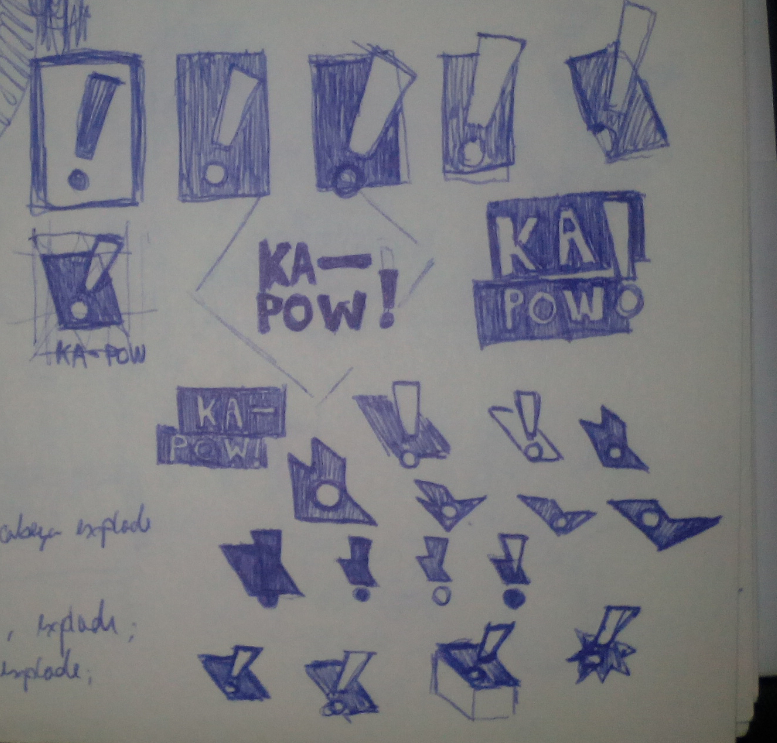 !
!
!
!
!
!
KA-POW
KA—
POW!
KA!
POW
KA-
POW!
explode
, explode;
explode;